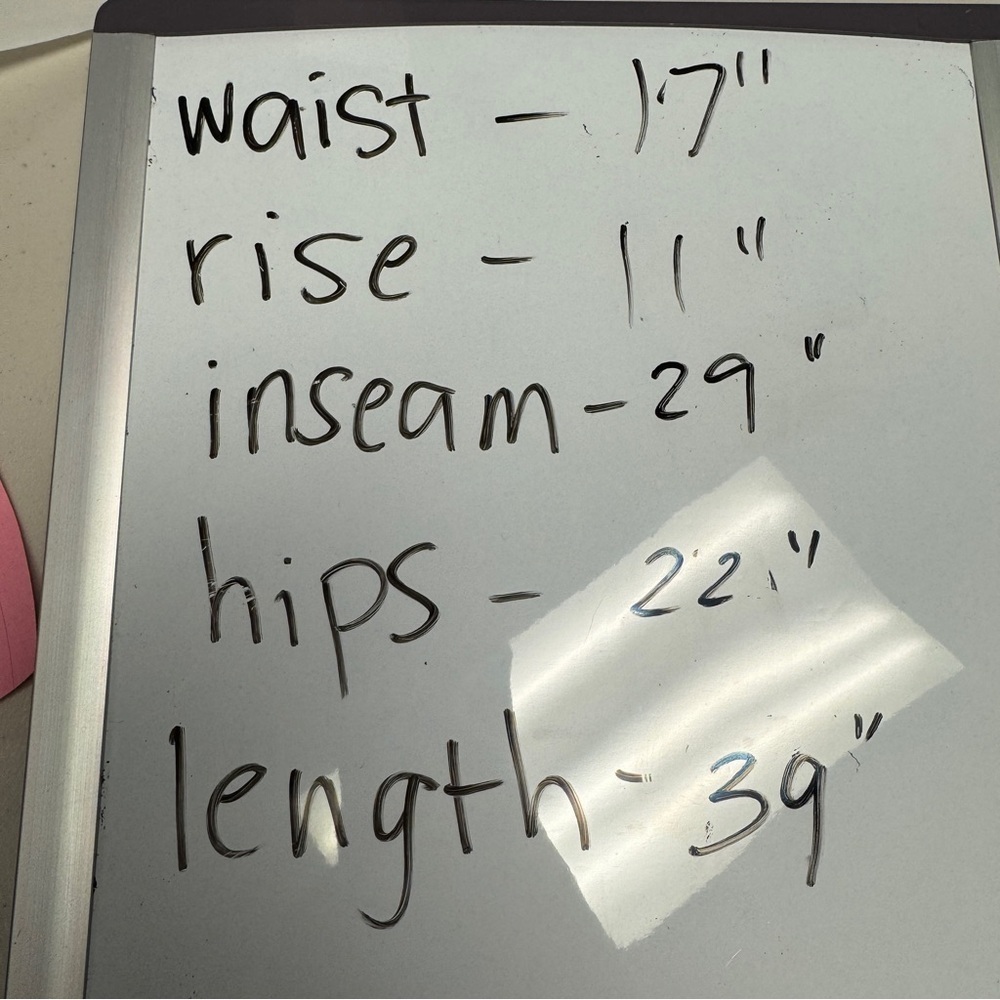 waist - 17"
rise - 11"
inseam - 29"
hips - 22"
length - 39"